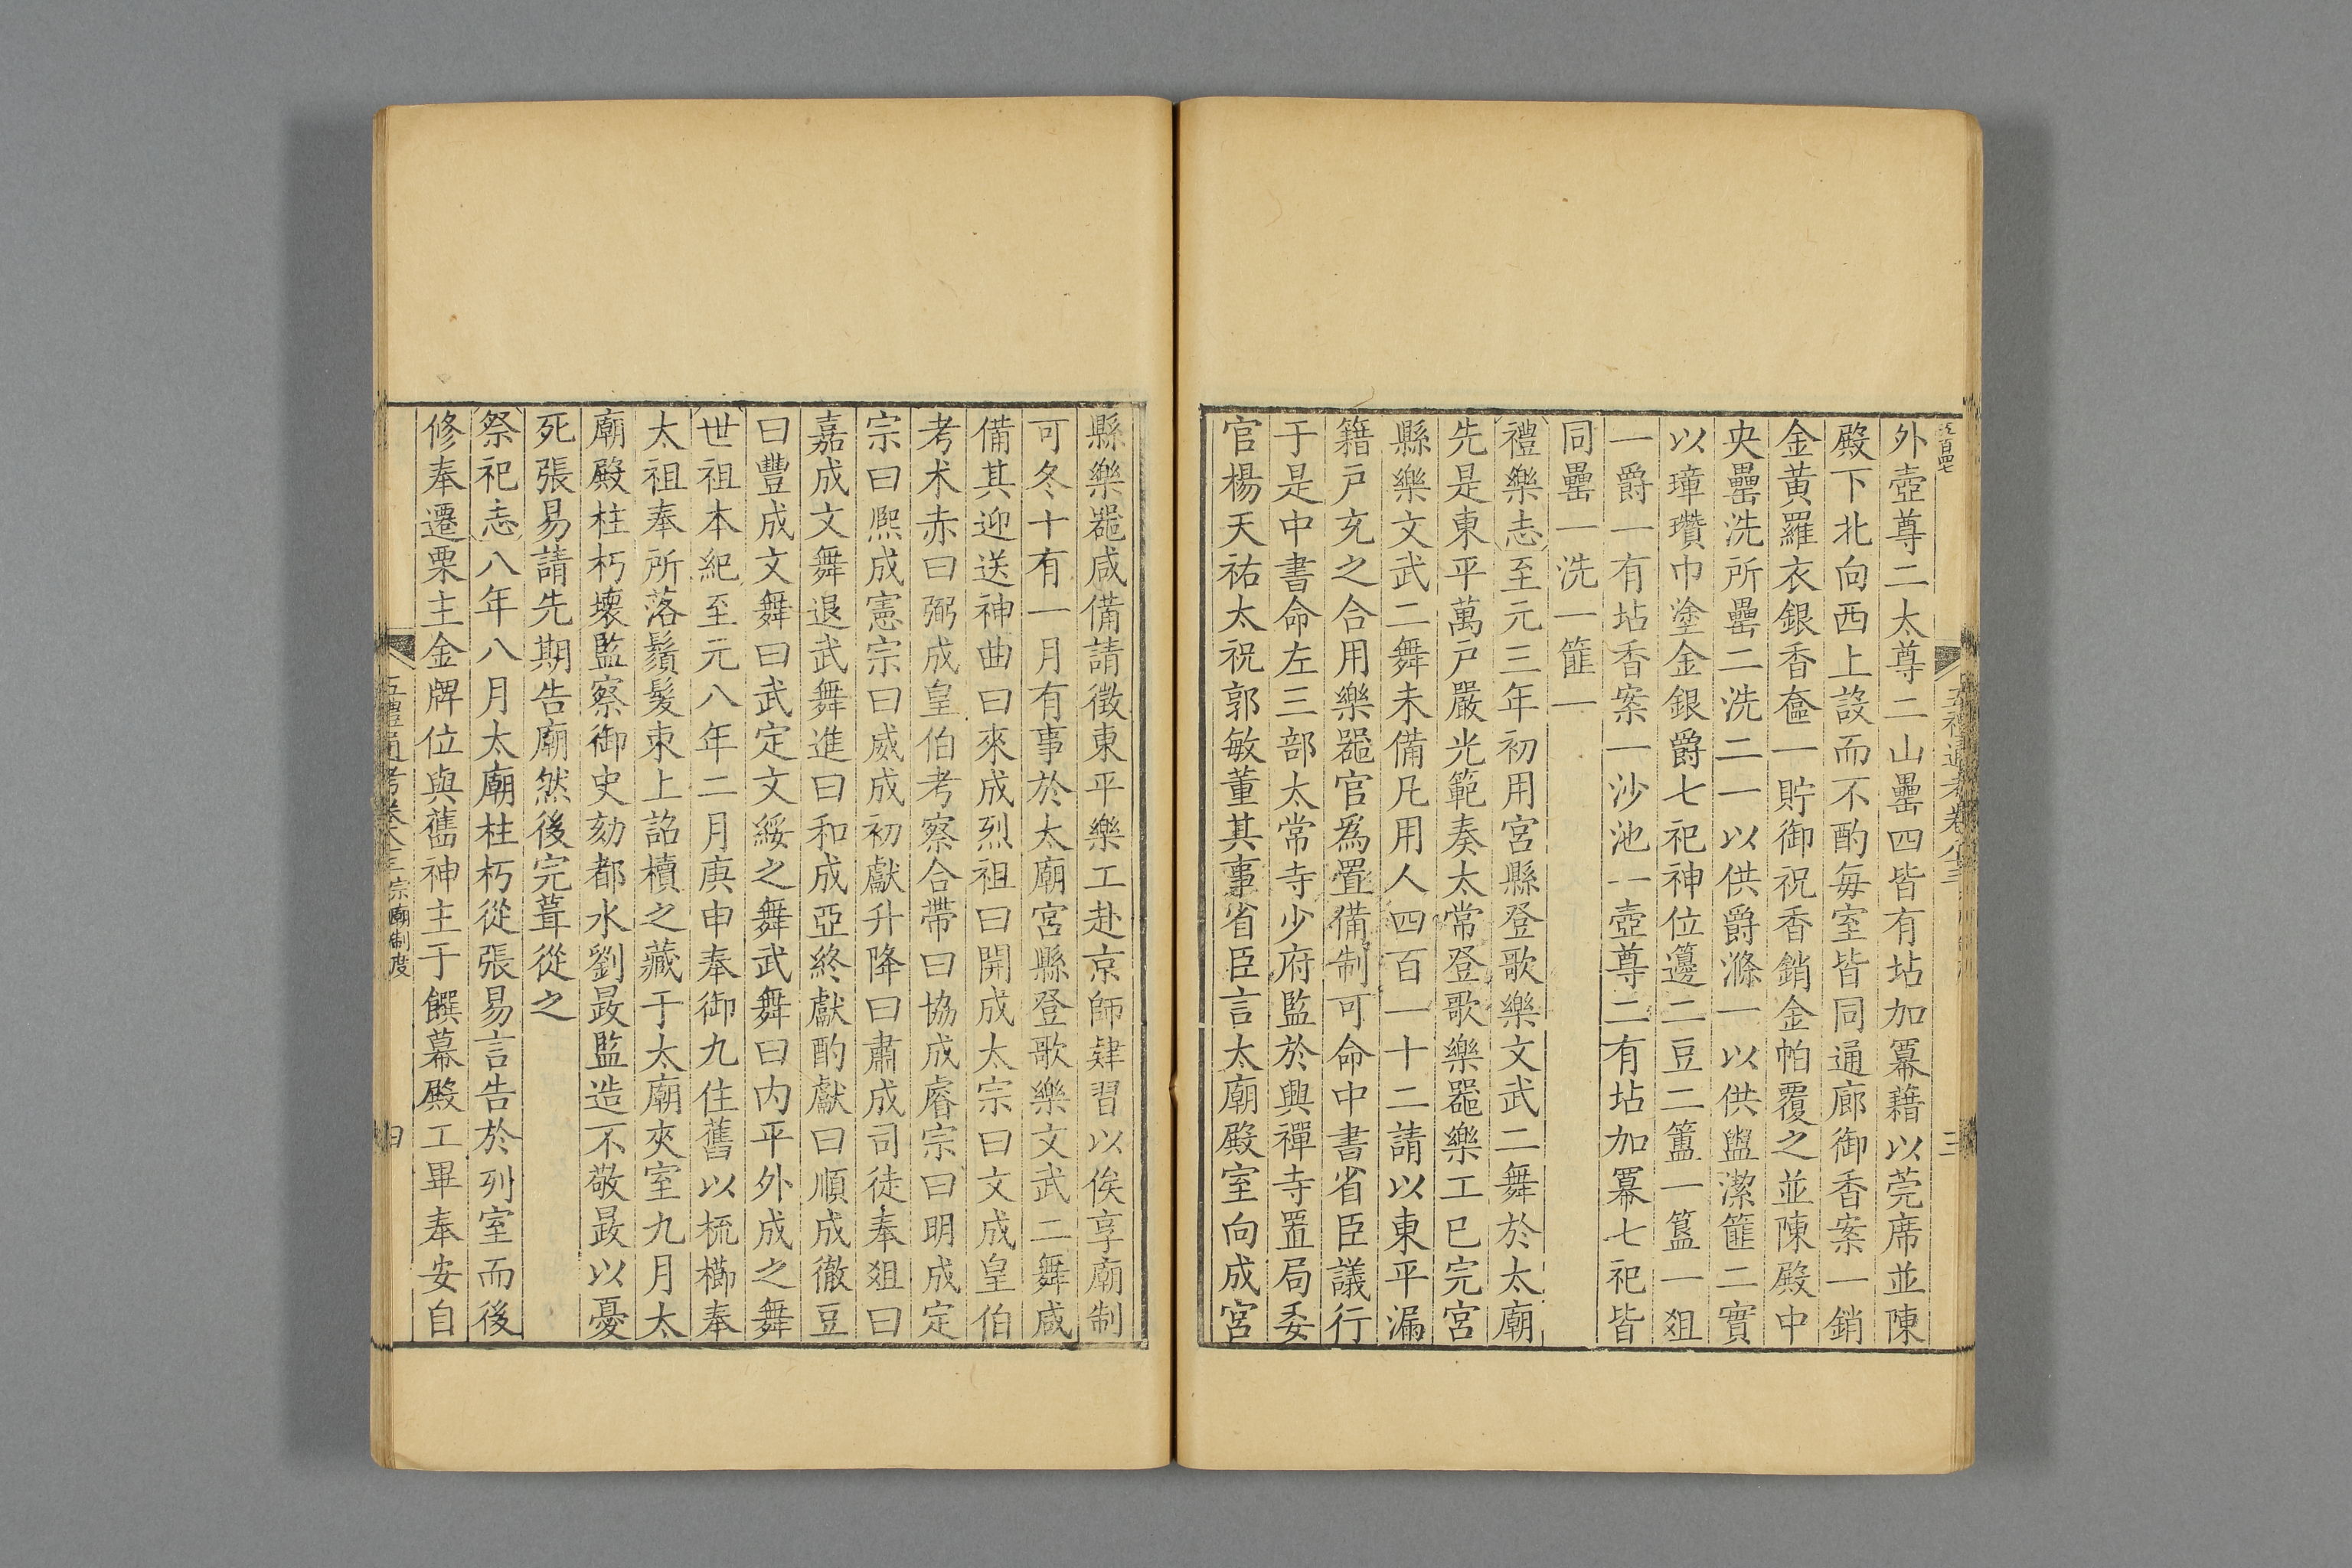 外壺尊二太尊二山罍四皆有坫加冪藉以莞席並陳
殿下北向西上設而不酌每室皆同通廊御香案一銷
金黃羅衣銀香奩一貯御祝香銷金帕覆之並陳殿中
央罍洗所罍二洗二一以供爵滌一以供盥潔篚二實
以璋瓚巾塗金銀爵七祀神位籩二豆二簠一簋一俎
一爵一有坫香案一沙池一壺尊二有坫加冪七祀皆
同罍一洗一篚一
禮樂志至元三年初用宮縣登歌樂文武二舞於太廟
先是東平萬戶嚴光範奏太常登歌樂器樂工已完宮
縣樂文武二舞未備凡用人四百一十二請以東平漏
籍戶充之合用樂器官爲置備制可命中書省臣議行
于是中書命左三部太常寺少府監於興禪寺置局委
官楊天祐太祝郭敏董其事省臣言太廟殿室向成宮
縣樂器咸備請徵東平樂工赴京師肄習以俟享廟制
可冬十有一月有事於太廟宮縣登歌樂文武二舞咸
備其迎送神曲曰來成烈祖曰開成太宗曰文成皇伯
考术赤曰弼成皇伯考察合帶曰協成睿宗曰明成定
宗曰熙成憲宗曰威成初獻升降曰肅成司徒奉俎曰
嘉成文舞退武舞進曰和成亞終獻酌獻曰順成徹豆
曰豐成文舞曰武定文綏之舞武舞曰內平外成之舞
世祖本紀至元八年二月庚申奉御九住舊以梳櫛奉
太祖奉所落鬚髮束上詔櫝之藏于太廟夾室九月太
廟殿柱朽壞監察御史劾都水劉晸監造不敬晸以憂
死張易請先期告廟然後完葺從之
祭祀志八年八月太廟柱朽從張易言告於列室而後
修奉遷栗主金牌位與舊神主于饌幕殿工畢奉安自
五禮通考卷八十三 宗廟制度